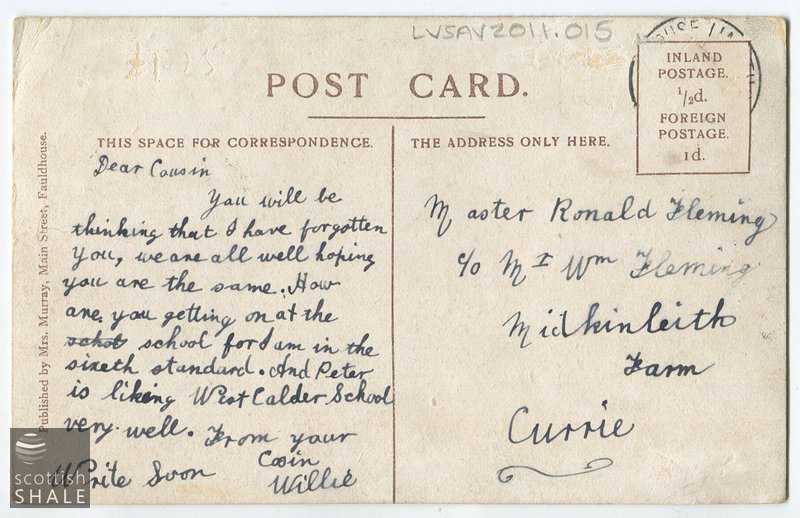 LVSAV2011.015
POST CARD.
INLAND
POSTAGE.
½d.
FOREIGN
POSTAGE.
1d.
THIS SPACE FOR CORRESPONDENCE.
THE ADDRESS ONLY HERE.
Published by Mrs. Murray, Main Street, Fauldhouse.
Dear Cousin
You will be
thinking that I have forgotten
you, we are all well hoping
you are the same. How
are you getting on at the
schol school for I am in the
sixeth standard. And Peter
is liking West Calder School
very well. From your
Write Soon Cosin
Willie
Master Ronald Fleming
c/o Mr Wm Fleming
Midkinleith
Farm
Currie
scottish
SHALE